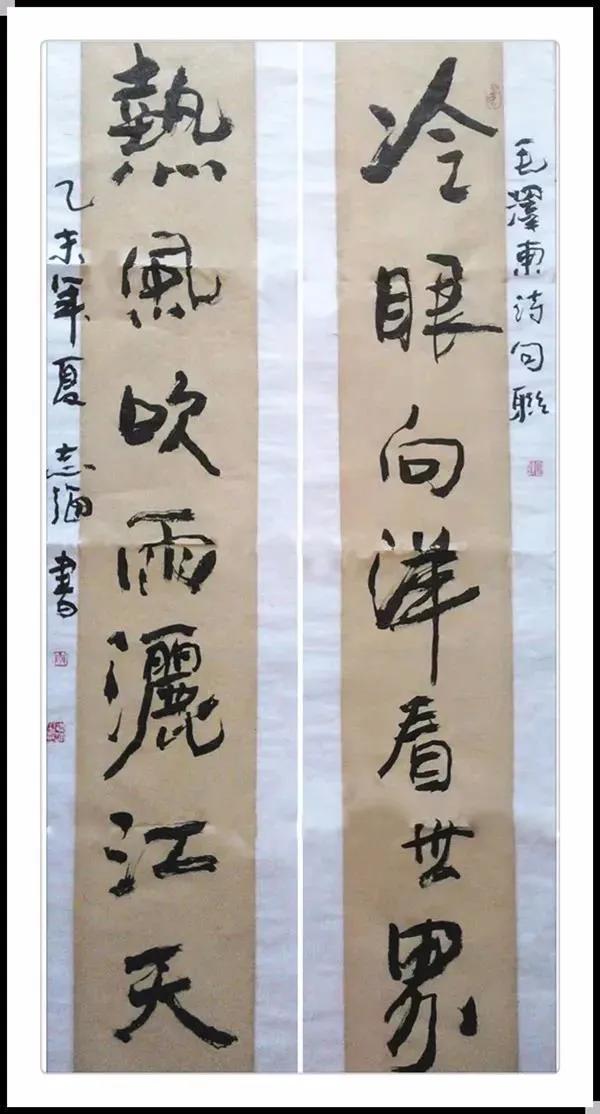 毛澤東诗句聯
冷眼向洋看世界
熱風吹雨灑江天
乙未年夏 志 書